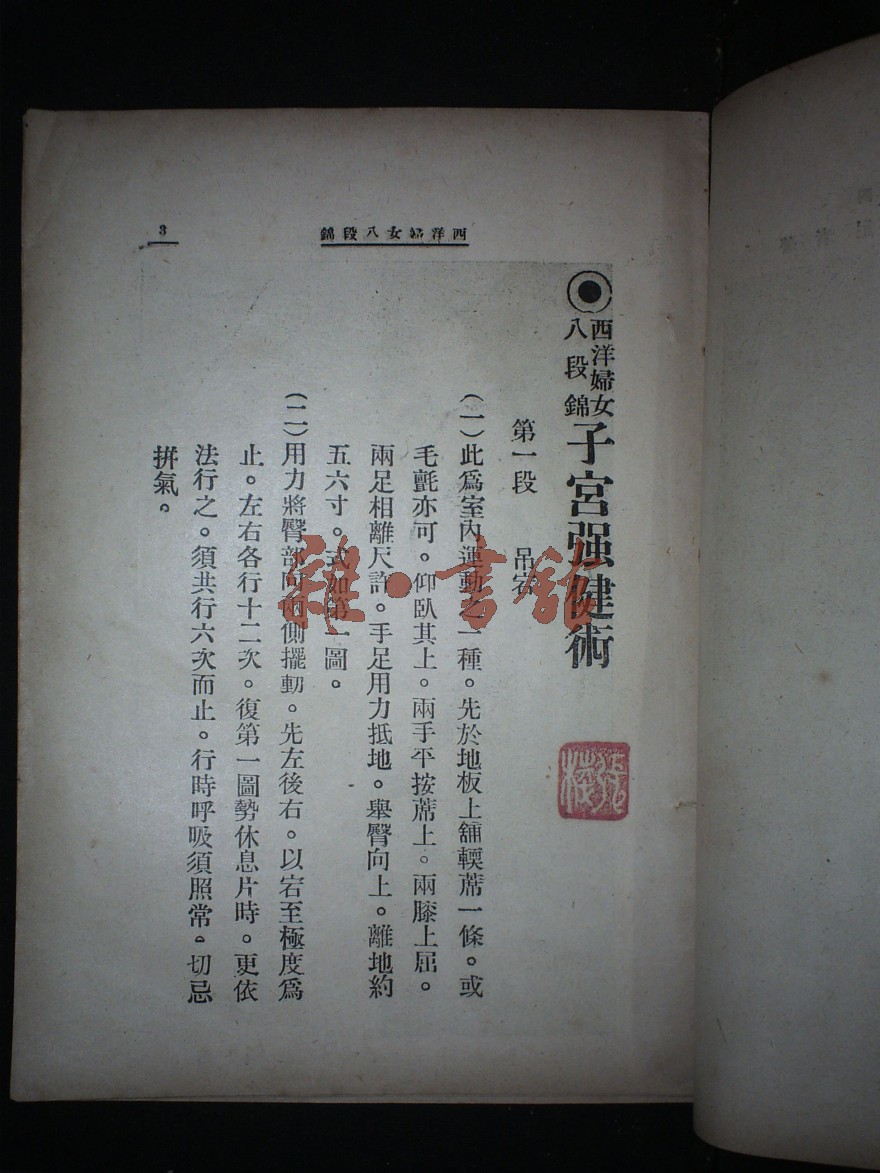 西洋婦女八段錦
3
西洋婦女
八段錦
子宮强健術
第一段 吊宕
(一)此爲室內運動之一種。先於地板上舖輭蓆一條。或
毛氈亦可。仰臥其上。兩手平按蓆上。兩膝上屈。
兩足相離尺許。手足用力抵地。舉臀向上。離地約
五六寸。式如第一圖。
(二)用力將臀部向兩側擺動。先左後右。以宕至極度爲
止。左右各行十二次。復第一圖勢休息片時。更依
法行之。須共行六次而止。行時呼吸須照常。切忌
拼氣。
雜·書館